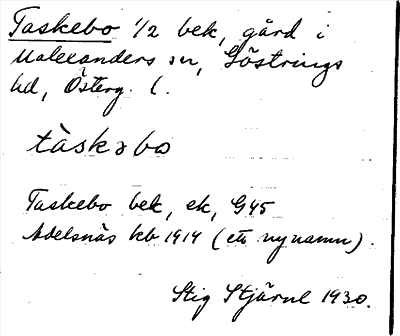 Taskebo 1/2 bek, gård i
Malexanders sn, Göstrings
hd, Österg. l.
tàskəbo
Taskebo bek, ek, G45
Adelsnäs kb 1914 (ett nynamn).
Stig Stjärnl 1930.